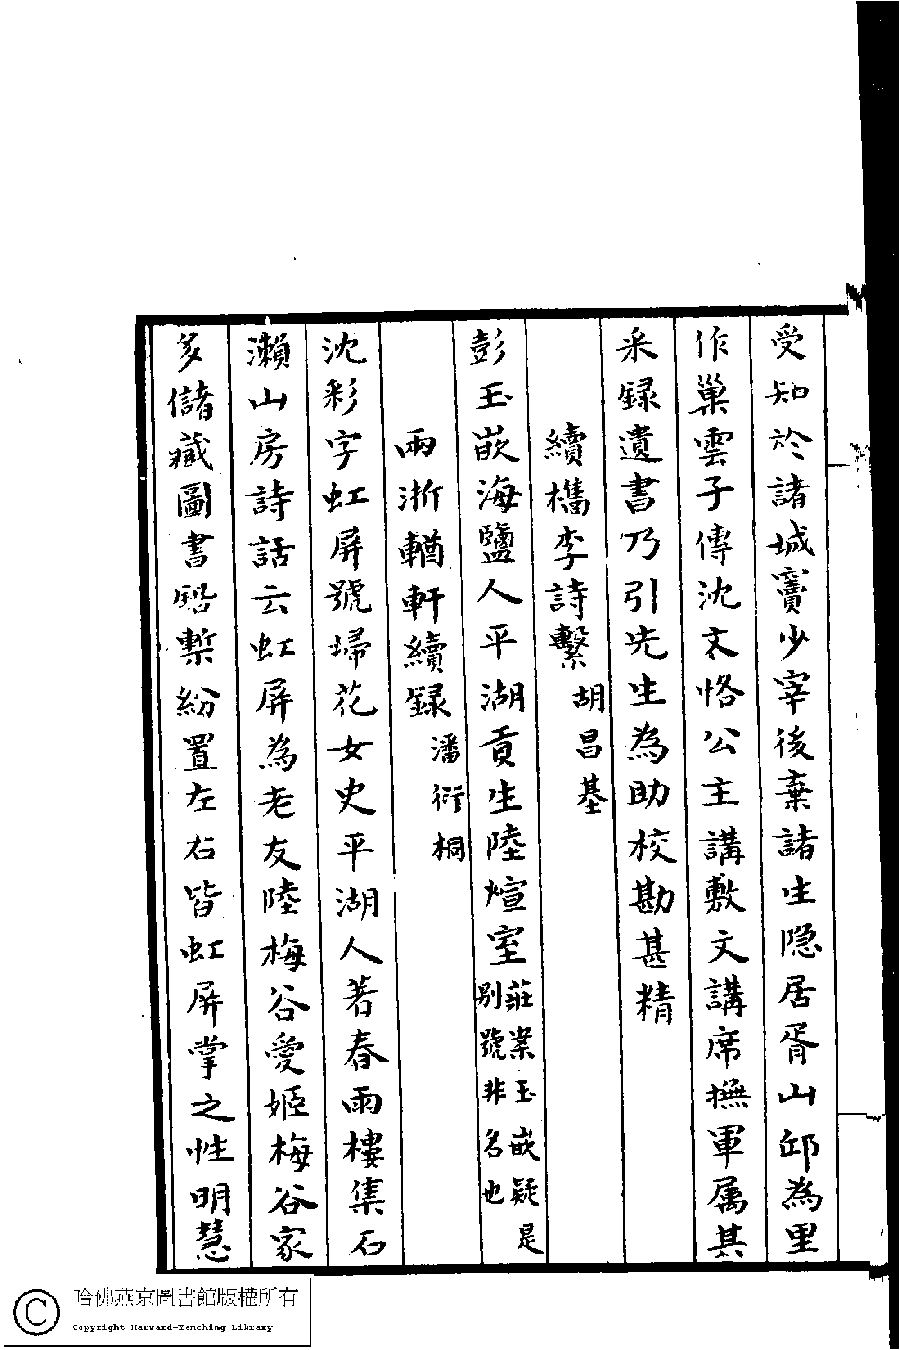 受知於諸城竇少宰後棄諸生隱居胥山邱為里
作巢雲子傳沈文恪公主講敷文講席撫軍属其
采録遺書乃引先生為助校勘甚精
續檇李詩繫 胡昌基
彭玉嵌海鹽人平湖貢生陸煊室莊案玉嵌疑是別號非名也
兩浙輶軒續録 潘衍桐
沈彩字虹屏號埽花女史平湖人著春雨樓集石
瀨山房詩話云虹屏為老友陸梅谷愛姬梅谷家
多儲藏圖書鉛槧紛置左右皆虹屏掌之性明慧
哈佛燕京圖書館版權所有
Copyright Harvard-Yenching Library